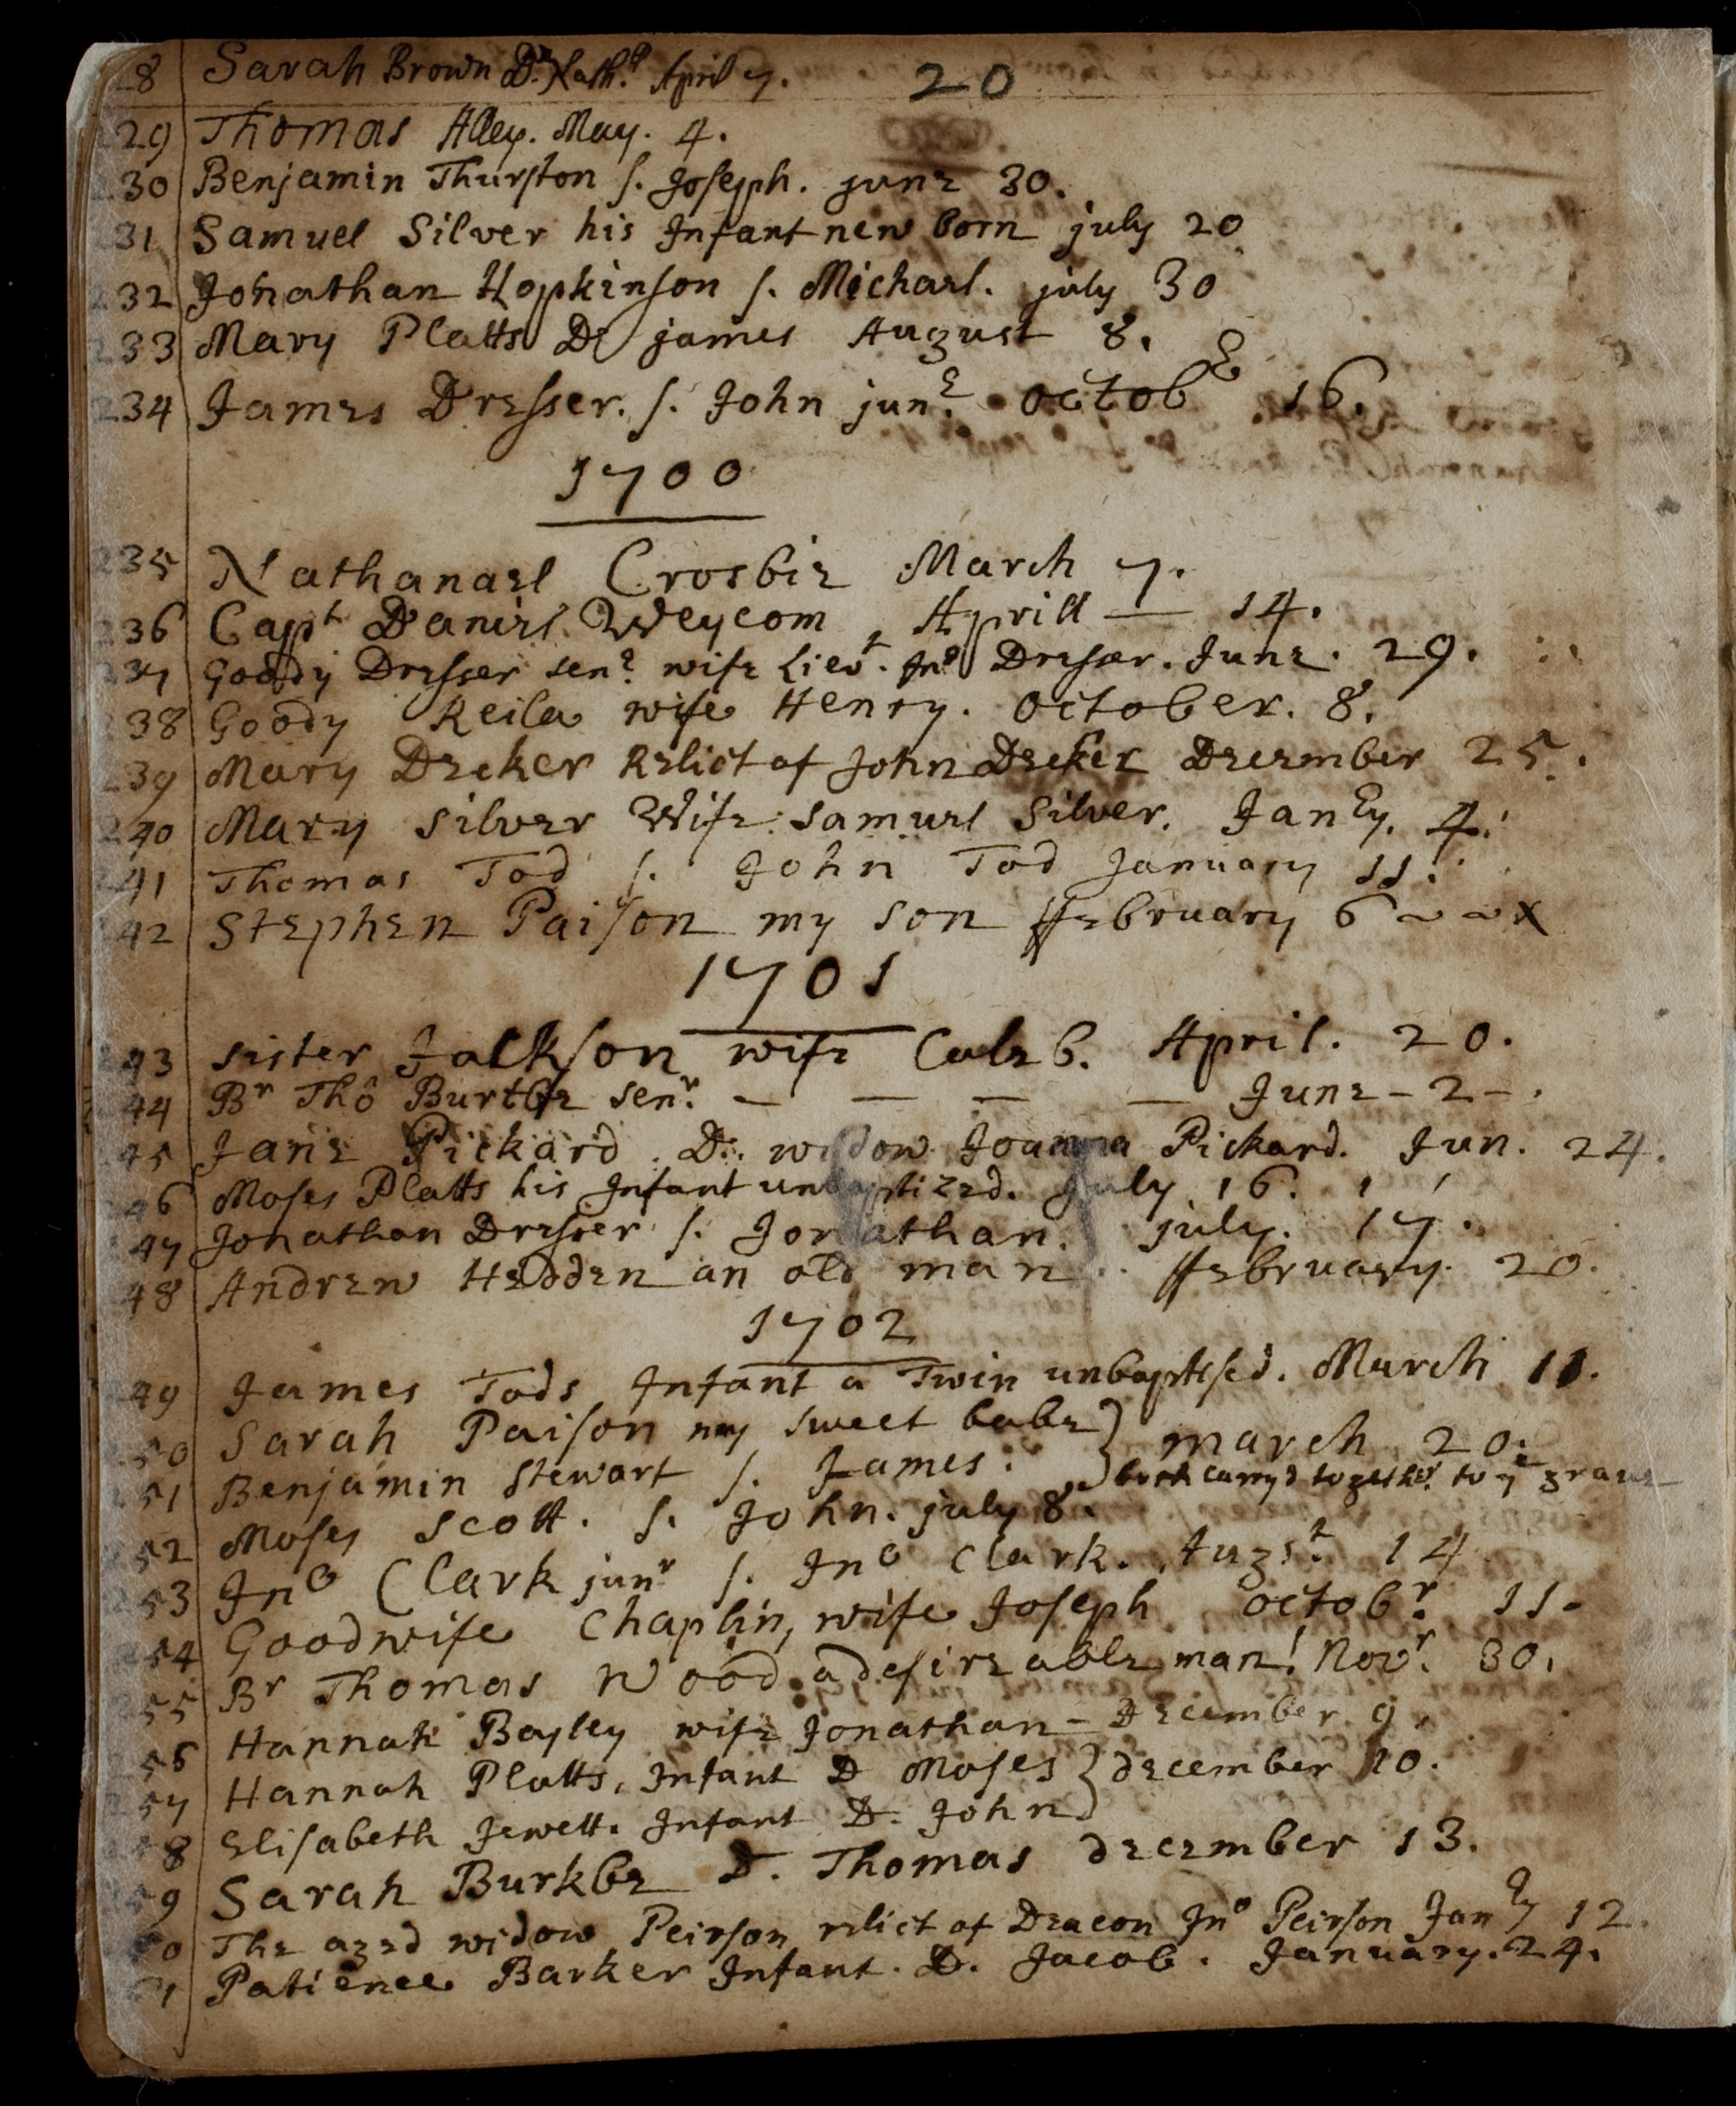 28 Sarah Brown Dr. Nathll April 7. 20
229 Thomas Alley. May. 4.
230 Benjamin Thurston s. Joseph. june 30.
231 Samuel Silver his Infant new born july 20
232 Jonathan Hopkinson s. Michael. july 30
233 Mary Platts D james August 8.
234 James Dresser. s. John junr. Octobr 16.
1700
235 Nathanael Crosbie March 7.
236 Capt Daniel Weycom Aprill — 14.
237 Goody Dresser senr. wife Lievt. Jno Dresser. June. 29.
238 Goody Reila wife Henry. October. 8.
239 Mary Decker Relict of John Decker December 25.
240 Mary Silver Wife Samuel Silver. Janry. 4.
241 Thomas Tod s. John Tod January 11.
242 Stephen Paison my son ffebruary 6 ~ ~ x
1701
243 sister Jackson wife Caleb. April. 20.
44 Br Tho Burtbe senr. — — — — June - 2 - .
45 Jane Pickard. D. widow Joanna Pickard. Jun. 24.
46 Moses Platts his Infant unbaptized. July 16.
47 Jonathan Dresser s. Jonathan. july. 17.
48 Andrew Hedden an old man. ffebruary. 20.
1702
49 James Tods Infant a Twin unbaptised. March 11.
50 Sarah Paison my sweet babe } march 20.
251 Benjamin Stewart s. James: } both carryd togethr. to ye grave
252 Moses Scott. s. John. july 8.
253 Jno Clark junr s. Jno Clark. Augst. 14
254 Goodwife Chaplin, wife Joseph Octobr. 11.
255 Br Thomas Wood a desireable man! Novr. 30.
256 Hannah Bayley wife Jonathan - December 9.
257 Hannah Platts, Infant D Moses } december 10.
58 Elisabeth Jewett. Infant D. John }
59 Sarah Burkbe D. Thomas december 13.
60 The aged widow Peirson relict of Deacon Jno Peirson Janry 12.
61 Patience Barker Infant. D. Jacob. January. 24.